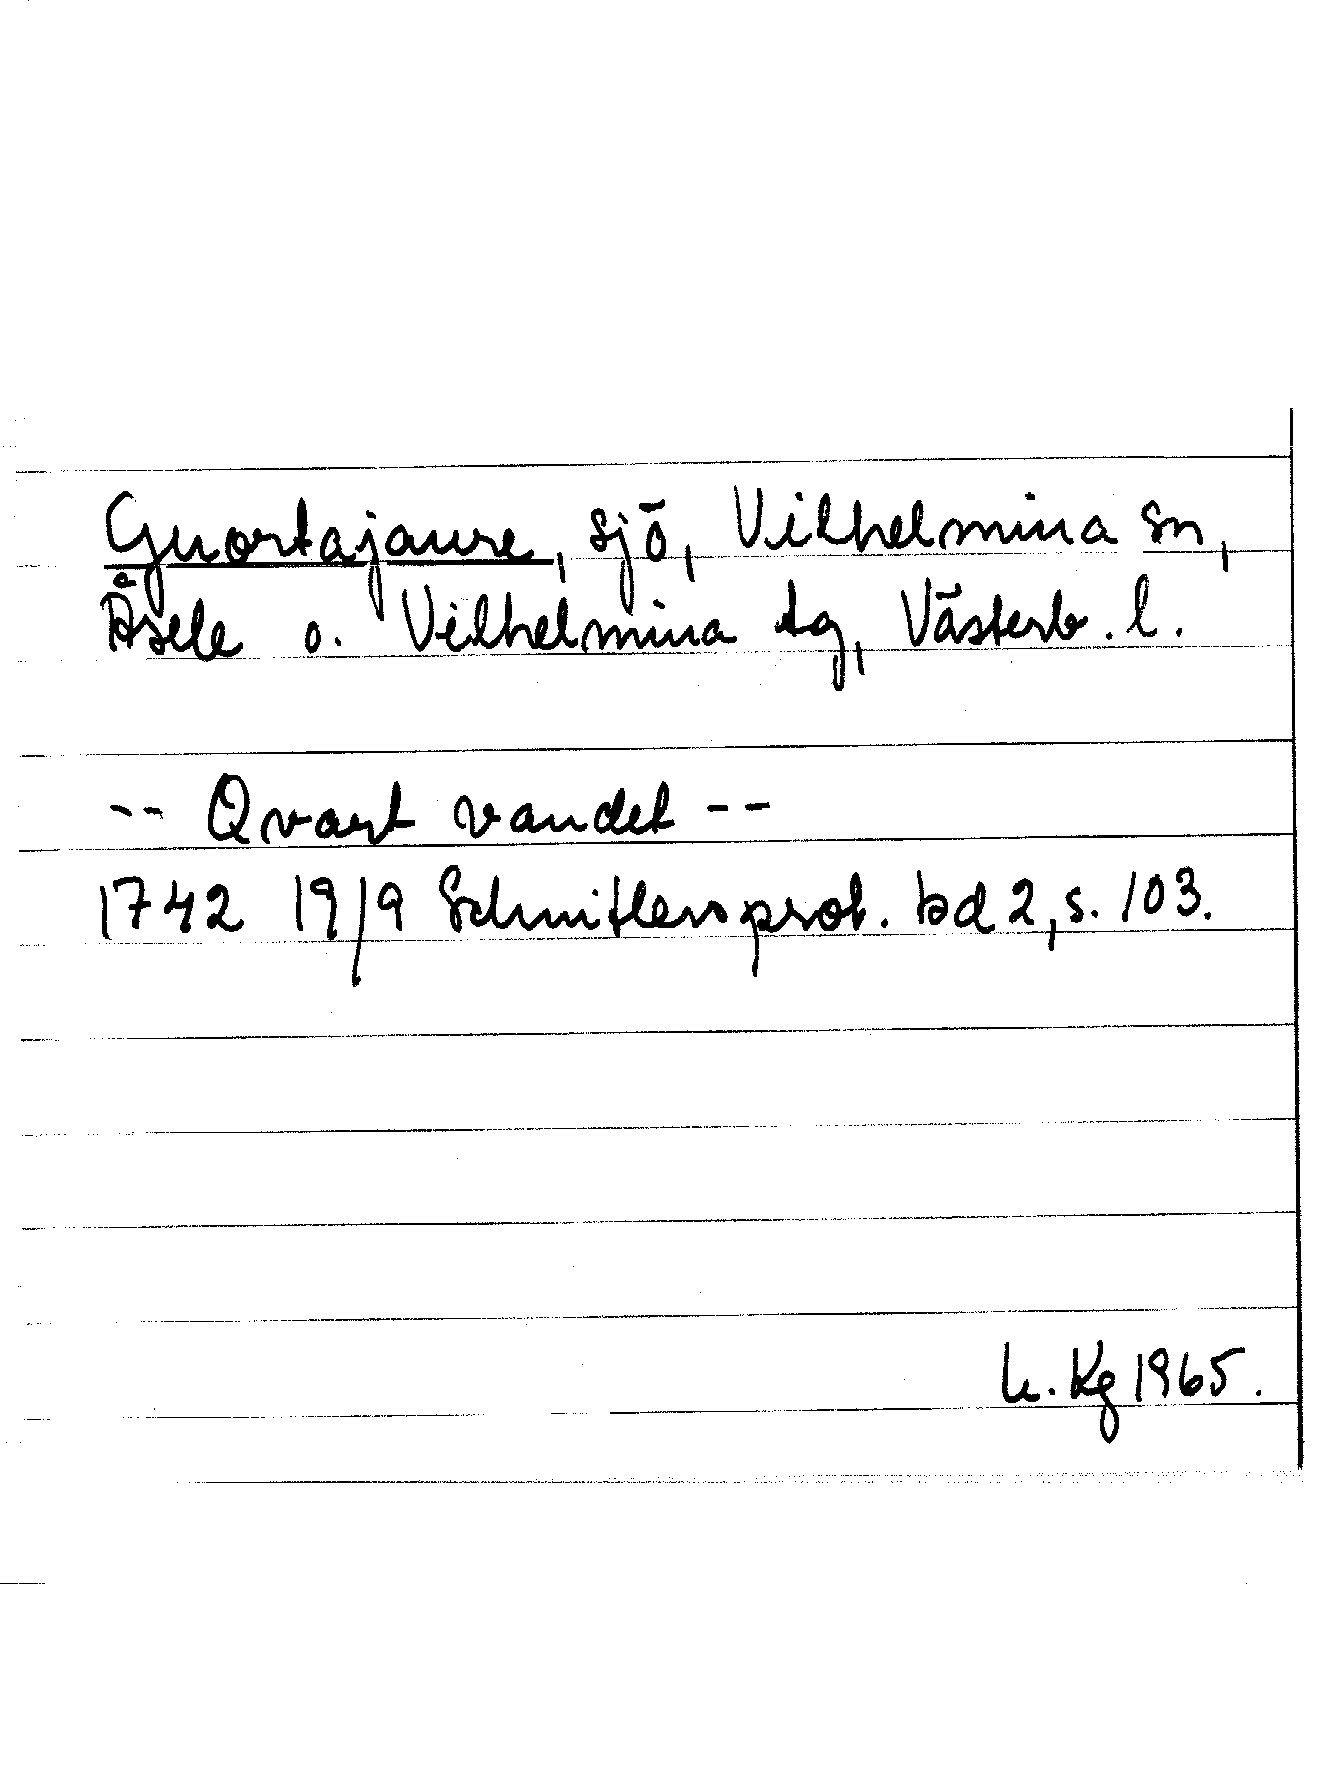 Guortajaure, sjö, Vilhelmina sn,
Åsele o. Vilhelmina tg, Västerb. l.
-- Qvart vandet --
1742 19/9 Schnitlers prot. bd 2, s. 103.
L. Kg 1965.